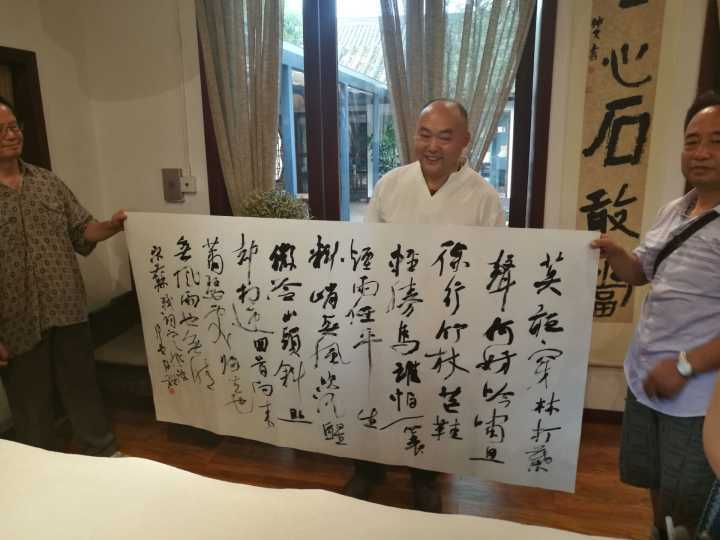 莫聽穿林打葉
聲何妨吟嘯且
徐行竹杖芒鞋
輕勝馬誰怕一蓑
煙雨任平生
料峭春風吹酒醒
微冷山頭斜照
却相迎回首向來
蕭瑟處歸去也
無風雨也無晴
心石敢